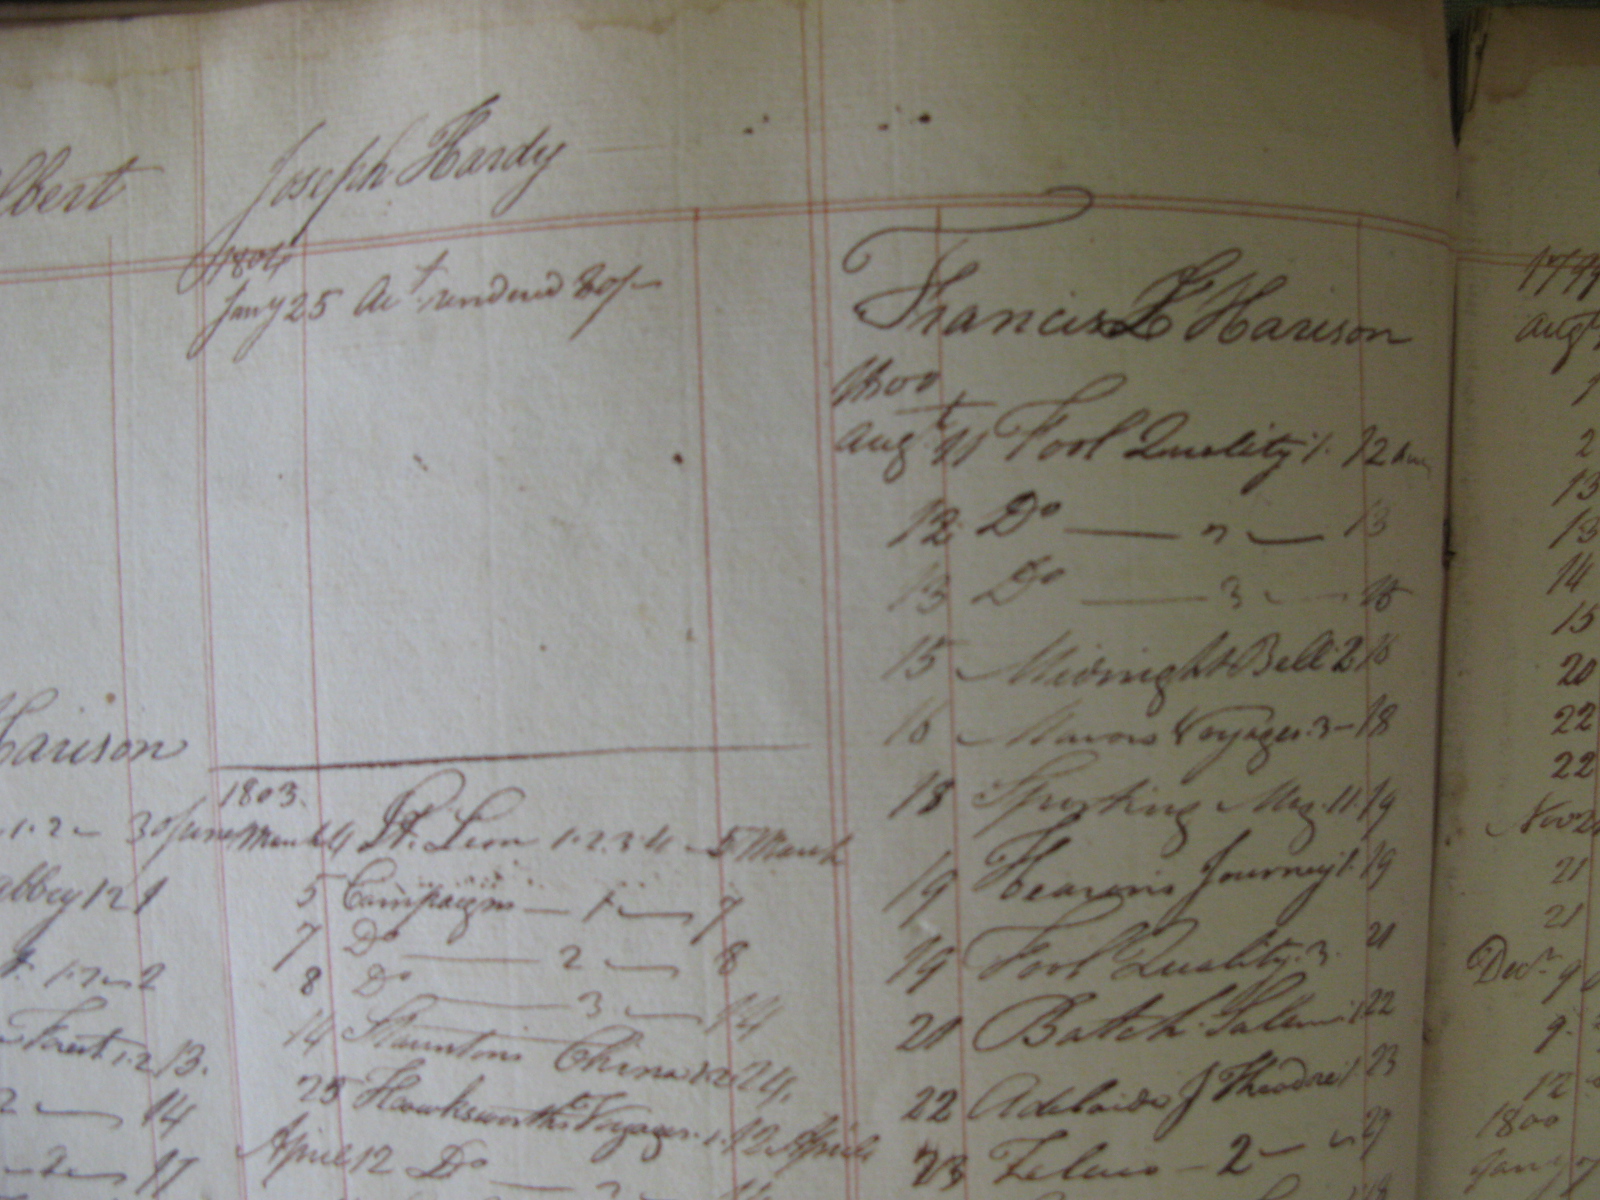 lbert
Joseph Hardy
1804
Jany 25 Act rendered 80/-
Harison
1.2 - 30 June
abbey 1 2 1
1.2 - 2
Forest 1.2 13.
2 - 14
17
1803.
March 4 St. Leon 1.2.3.4 - 5 March
5 Campaigns - 1 - 7
7 Do - 2 - 8
8 Do - 3 - 14
14 Stauntons China 1.2 24,
25 Hawksworths Voyages 1. 12 April
April 12 Do
Francis L Harison
1800
Augt 11 Fool Quality 1. 12 Aug
12 Do - 2 - 13
13 Do - 3 - 15
15 Midnight Bell 2 16
16 Mavors Voyages. 3 - 18
18 Sporting Mag. 11. 19
19 Hearons Journey 1. 19
19 Fool Quality. 3. 21
21 Batch. Salam. 1 22
22 Adelaide & Theodore 1 23
23 Zeluco - 2 - 27
1799
Augt
1
2
13
13
14
15
20
22
22
Nov
21
21
Decr 9
9
12
1800
Jany